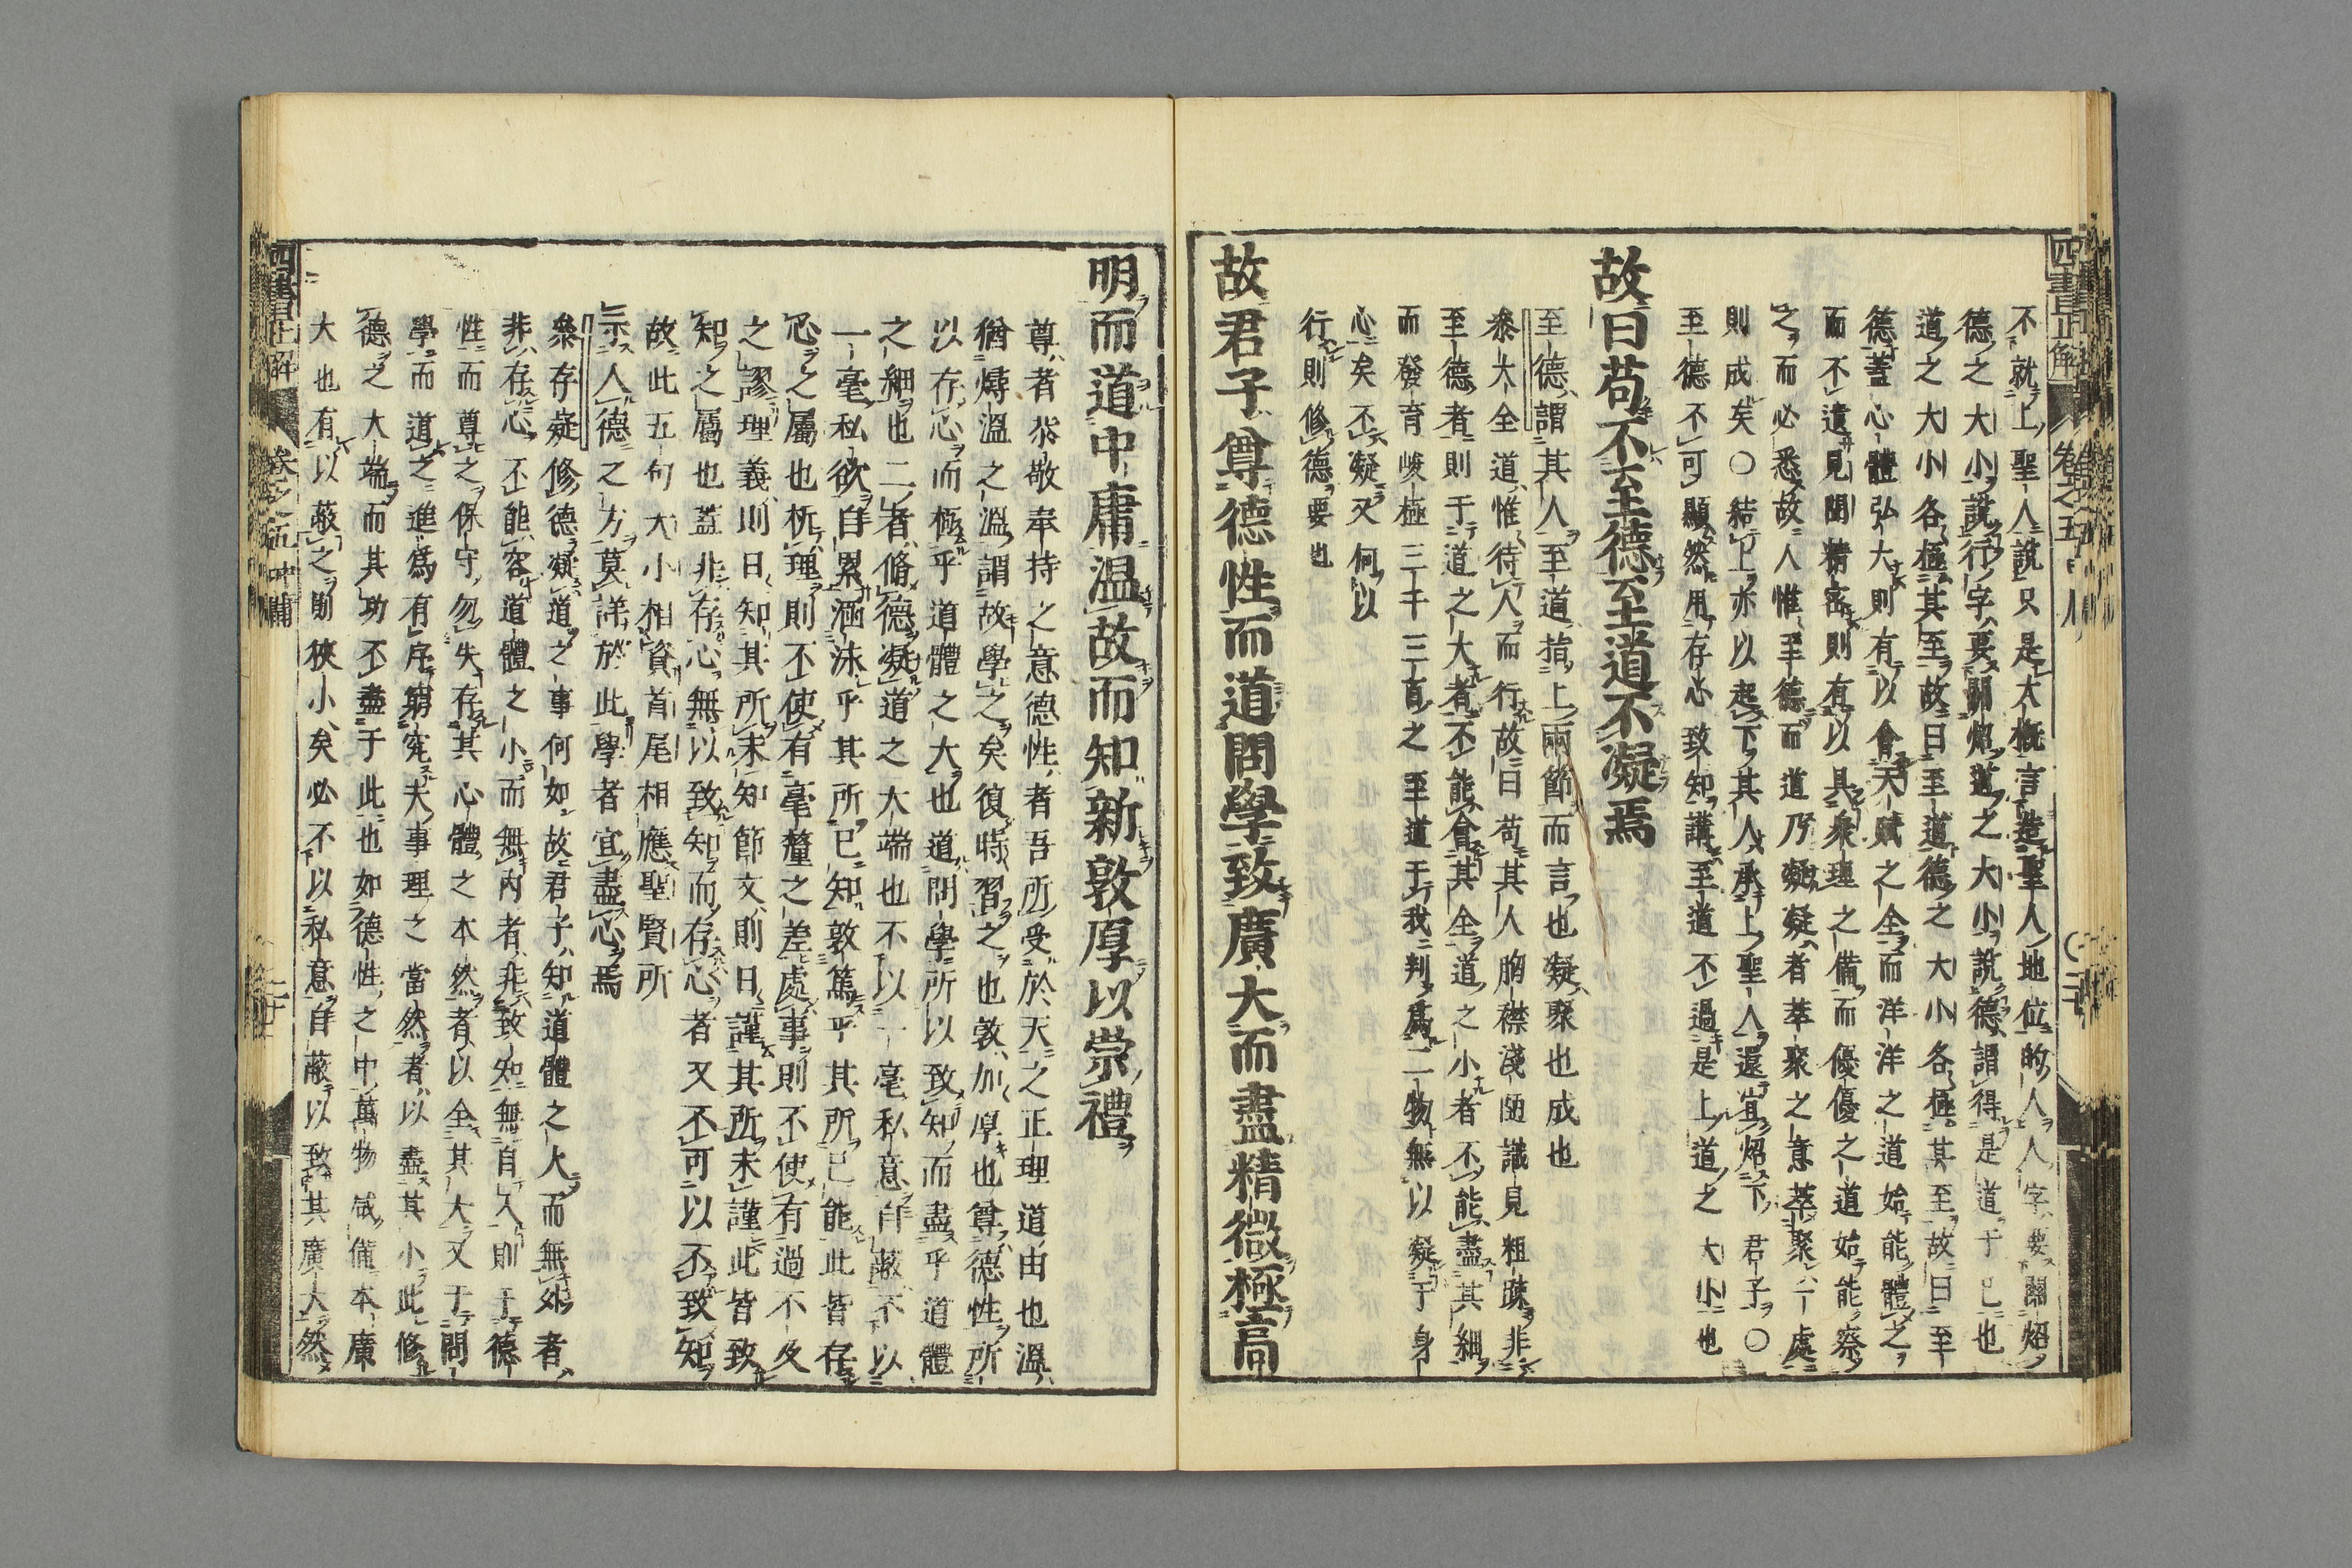 不就上聖人說只是大槪言造聖人地位的人人字要關炤
德之大小說行字要關炤道之大小說德謂得是道于己也
道之大小各極其至故曰至道德之大小各極其至故曰至
德蓋心體弘大則有以會天賦之全而洋洋之道始能體之
而不遺見聞精密則有以具衆理之備而優優之道始能察
之而必悉故人惟至德而道乃凝凝者萃聚之意萃聚一處
則成矣○結上亦以起下其人承上聖人還宜炤下君子○
至德不可顯然用存心致知講至道不過是上道之大小也
故曰苟不至德至道不凝焉
至德謂其人至道指上兩節而言也凝聚也成也
叅大全道惟待人而行故曰苟其人胸襟淺陋識見粗疎非
至德者則于道之大者不能會其全道之小者不能盡其細
而發育峻極三千三百之至道于我判爲二物無以凝于身
心矣不凝又何以
行則修德要也
故君子尊德性而道問學致廣大而盡精微極高
四書正解
卷之五
明而道中庸溫故而知新敦厚以崇禮
尊者恭敬奉持之意德性者吾所受於天之正理道由也溫
猶燖溫之溫謂故學之矣復時習之也敦加厚也尊德性所
以存心而極乎道體之大也道問學所以致知而盡乎道體
之細也二者脩德凝道之大端也不以一毫私意自蔽不以
一毫私欲自累涵泳乎其所已知敦篤乎其所已能此皆存
心之屬也析理則不使有毫釐之差處事則不使有過不及
之謬理義則日知其所未知節文則日謹其所未謹此皆致
知之屬也蓋非存心無以致知而存心者又不可以不致知
故此五句大小相資首尾相應聖賢所
示人德之方莫詳於此學者宜盡心焉
叅存疑修德凝道之事何如故君子知道體之大而無外者
非存心不能容道體之小而無內者非致知無自入則于德
性而尊之保守勿失存其心體之本然者以全其大又于問
學而道之進爲有序窮究夫事理之當然者以盡其小此修
德之大端而其功不盡于此也如德性之中萬物咸備本廣
大也有以蔽之則狹小矣必不以私意自蔽以致其廣大然
四書正解
卷之五 中庸